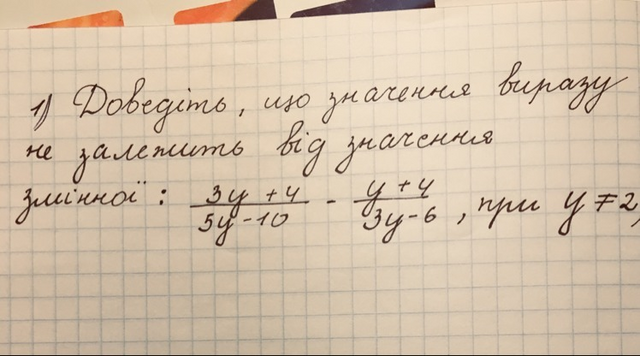 1) Доведіть, що значення виразу
не залежить від значення
змінної: (3y+4)/(5y-10) - (y+4)/(3y-6), при y≠2,